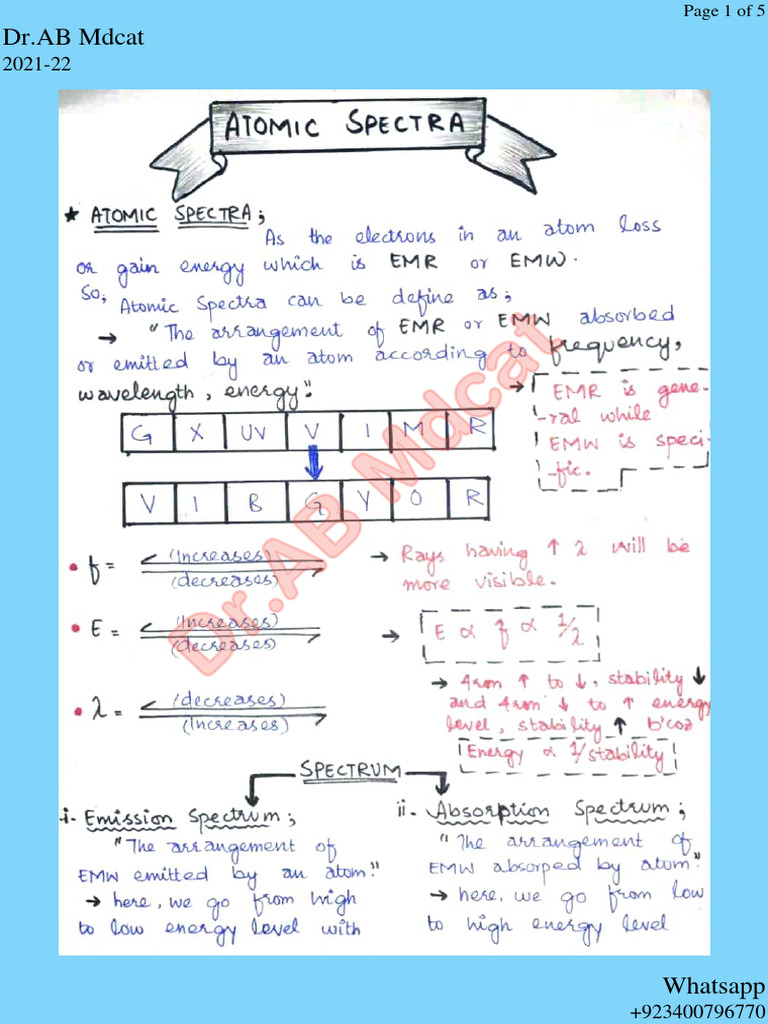 Page 1 of 5
Dr.AB Mdcat
2021-22
ATOMIC SPECTRA
★ ATOMIC SPECTRA;
As the electrons in an atom loss
or gain energy which is EMR or EMW.
So, Atomic Spectra can be define as;
→ "The arrangement of EMR or EMW absorbed
or emitted by an atom according to frequency,
wavelength, energy".
→ EMR is gene-
-ral while
EMW is speci-
-fic.
G X UV V I M R
V I B G Y O R
• f = (Increases)
(decreases)
→ Rays having ↑ λ will be
more visible.
• E = (Increases)
(decreases)
→ E ∝ f ∝ 1/λ
→ 4rom ↑ to ↓, stability ↓
and 4rom ↓ to ↑ energy
level, stability ↑ b'coz
Energy ∝ 1/stability
• λ = (decreases)
(Increases)
SPECTRUM
i- Emission Spectrum;
"The arrangement of
EMW emitted by an atom."
→ here, we go from high
to low energy level with
ii- Absorption Spectrum;
"The arrangement of
EMW absorped by atom."
→ here, we go from low
to high energy level
Dr.AB Mdcat
Whatsapp
+923400796770